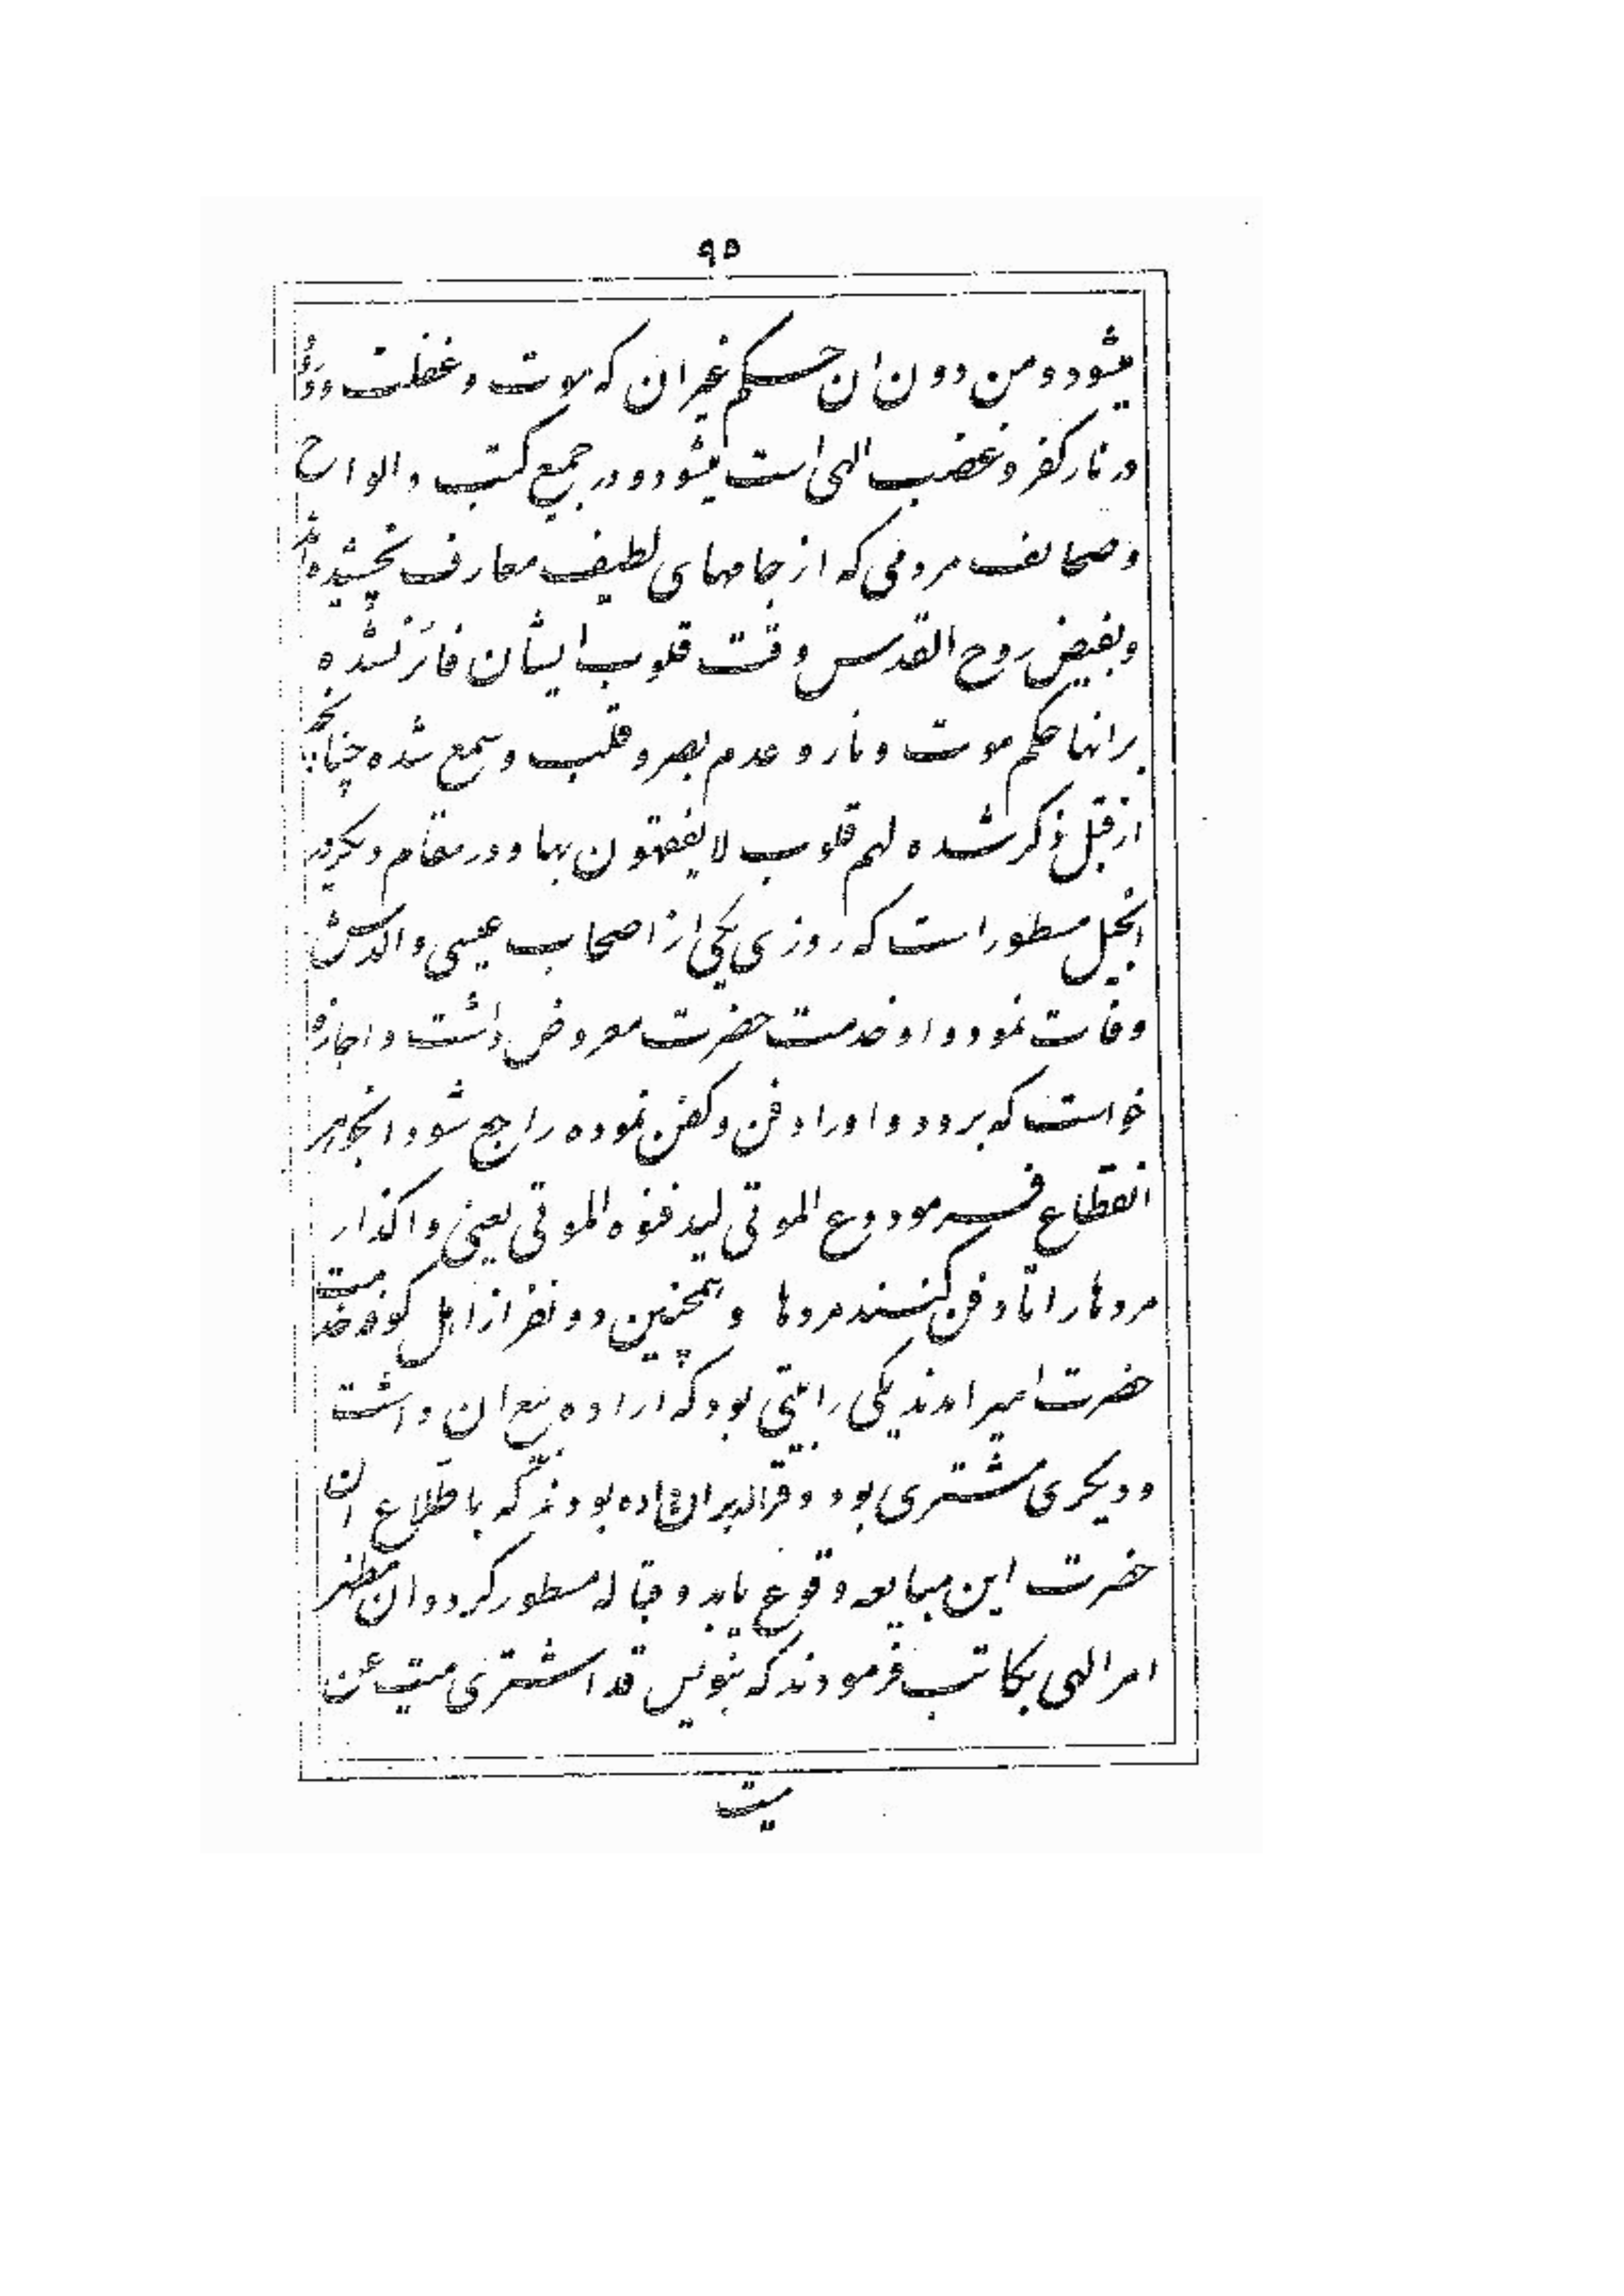 ٩٥
میشود و من دون ان حکم غیر ان که موت و غفلت و ورود
در نار کفر و غضب الهی است میشود و در جمیع کتب و الواح
و صحائف مردمی که از جامهای لطیف معارف نچشیده‌اند
و بفیض روح القدس وقت قلوب ایشان فائز نشده
بر انها حکم موت و نار و عدم بصر و قلب و سمع شده چنانچه
از قبل ذکر شده لهم قلوب لا یفقهون بها و در مقام دیگر در
انجیل مسطور است که روزی یکی از اصحاب عیسی والدش
وفات نمود و او خدمت حضرت معروض داشت و اجازه
خواست که برود و او را دفن و کفن نموده راجع شود انجوهر
انقطاع فرمود دع الموتی لیدفنوه الموتی یعنی واگذار
مرده‌ها را تا دفن کنند مرده‌ها و همچنین دو نفر از اهل کوفه خدمت
حضرت امیر امدند یکی را بیتی بود که اراده بیع ان داشت
و دیگری مشتری بود و قرار بر ان داده بودند که باطّلاع ان
حضرت این مبایعه وقوع یابد و قباله مسطور گردد ان مظهر
امر الهی بکاتب فرمودند که بنویس قد اشتری میت عن
میت